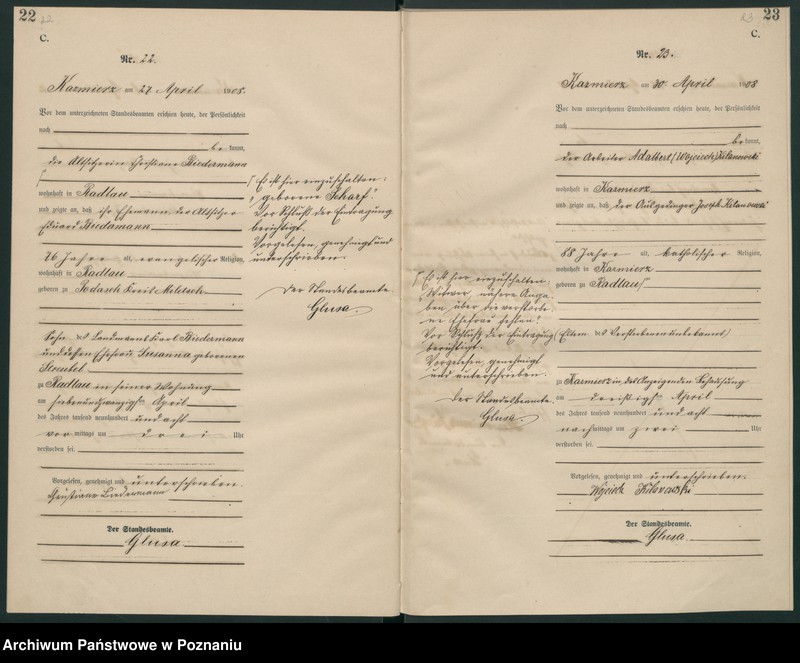 22 22
C.
Nr. 22.
Kazmierz am 27 April 1908.
Vor dem unterzeichneten Standesbeamten erschien heute, der Persönlichkeit
nach
be kannt,
die Altsitzerin Christiane Biedermann
wohnhaft in Radlau
und zeigte an, daß ihr Ehemann, der Altsitzer
Eduard Biedermann
76 Jahre alt, evangelischer Religion,
wohnhaft in Radlau
geboren zu
Sohn des Landwirts Karl Biedermann
und dessen Ehefrau Susanna geborenen
zu Radlau in seiner Wohnung
am siebenundzwanzigsten April
des Jahres tausend neunhundert und acht
vor mittags um drei Uhr
verstorben sei.
Vorgelesen, genehmigt und unterschrieben.
Christiane Biedermann
Der Standesbeamte.
Glusa
Es ist hier einzuschalten:
„geborene Scharf."
Vor Schluß der Eintragung
berichtigt.
Vorgelesen, genehmigt und
unterschrieben.
Der Standesbeamte.
Glusa.
23 23
C.
Nr. 23.
Kazmierz am 30 April 1908
Vor dem unterzeichneten Standesbeamten erschien heute, der Persönlichkeit
nach
be kannt,
der Arbeiter Adalbert (Wojciech) Kilanowski
wohnhaft in Kazmierz
und zeigte an, daß der Ausgedinger Joseph Kilanowski
88 Jahre alt, katholischer Religion,
wohnhaft in Kazmierz
geboren zu Radlau
(Eltern des Verstorbenen unbekannt)
zu Kazmierz in des Anzeigenden Behausung
am dreißigsten April
des Jahres tausend neunhundert und acht
nach mittags um zwei Uhr
verstorben sei.
Vorgelesen, genehmigt und unterschrieben.
Wojciech Kilanowski
Der Standesbeamte.
Glusa
Es ist hier einzuschalten:
Witwer, nähere Anga-
ben über die verstorbe-
ne Ehefrau fehlen.
Vor Schluß der Eintragung
berichtigt.
Vorgelesen, genehmigt
und unterschrieben.
Der Standesbeamte.
Glusa.
Archiwum Państwowe w Poznaniu